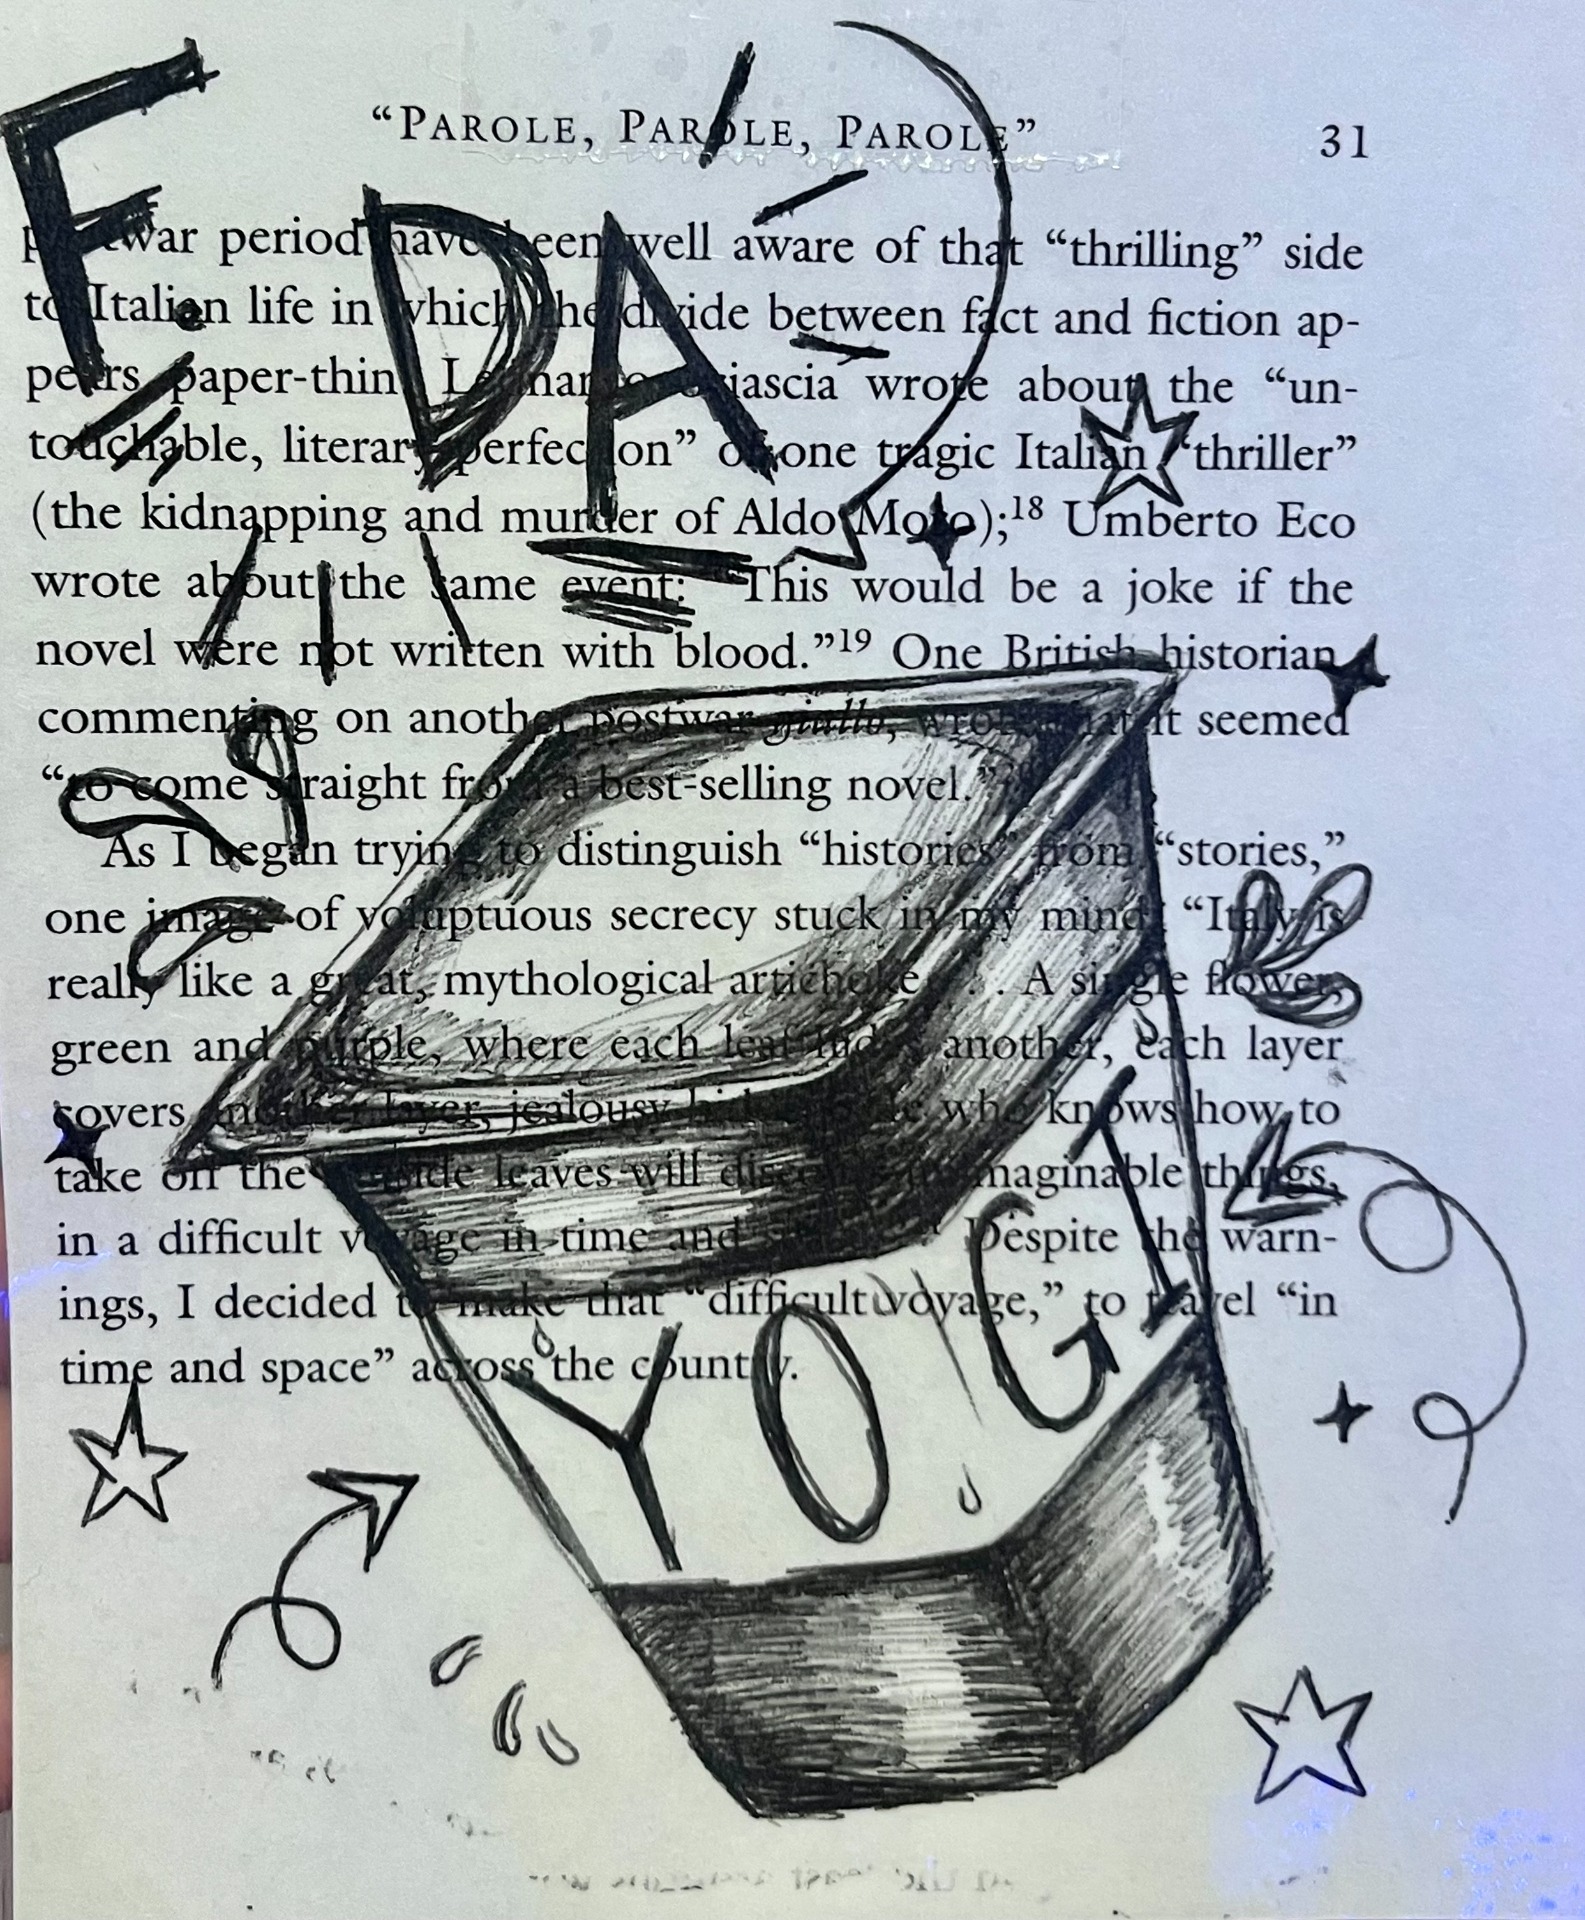 “PAROLE, PAROLE, PAROLE” 31
F. DA
postwar period have been well aware of that “thrilling” side
to Italian life in which the divide between fact and fiction ap-
pears paper-thin. Leonardo Sciascia wrote about the “un-
touchable, literary perfection” of one tragic Italian “thriller”
(the kidnapping and murder of Aldo Moro);18 Umberto Eco
wrote about the same event: “This would be a joke if the
novel were not written with blood.”19 One British historian,
commenting on another postwar giallo, wrote that it seemed
“to come straight from a best-selling novel.”
As I began trying to distinguish “histories” from “stories,”
one image of voluptuous secrecy stuck in my mind: “Italy is
really like a great, mythological artichoke . . . A single flower,
green and purple, where each leaf hides another, each layer
covers another layer, jealousy who knows how to
take off the outside leaves will discover unimaginable things,
in a difficult voyage in time and Despite the warn-
ings, I decided to make that “difficult voyage,” to travel “in
time and space” across the country.
YOGI